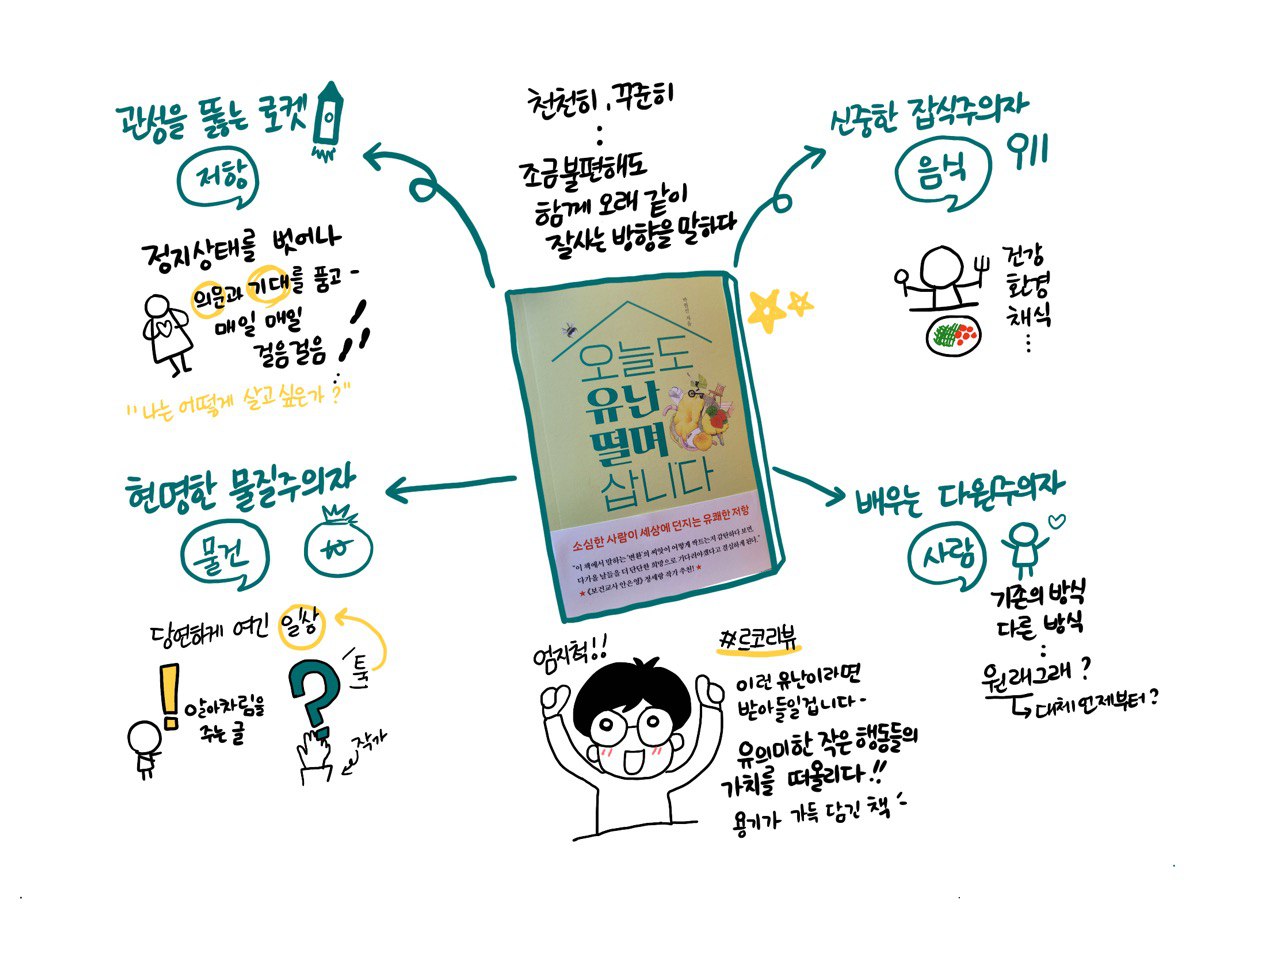 관성을 뚫는 로켓
저항
정지상태를 벗어나
의문과 기대를 품고 -
매일 매일
걸음걸음 !!
"나는 어떻게 살고싶은가?"
천천히, 꾸준히
:
조금불편해도
함께 오래 같이
잘사는 방향을 말하다
신중한 잡식주의자
음식
건강
환경
채식
⋮
오늘도
유난
떨며
삽니다
박현선 지음
소심한 사람이 세상에 던지는 유쾌한 저항
"이 책에서 말하는 '변환'의 씨앗이 어떻게 싹트는지 감탄하다 보면,
다가올 날들을 더 단단한 희망으로 기다려야겠다고 결심하게 된다."
★《보건교사 안은영》 정세랑 작가 추천! ★
현명한 물질주의자
물건
당연하게 여긴 일상
툭
! ?
알아차림을
주는 글
작가
배우는 다원주의자
사람
기존의 방식
다른 방식
:
원래그래?
대체 언제부터?
엄지척!!
#르코리뷰
이런 유난이라면
받아들일겁니다-
유의미한 작은 행동들의
가치를 떠올리다!!
용기가 가득 담긴 책